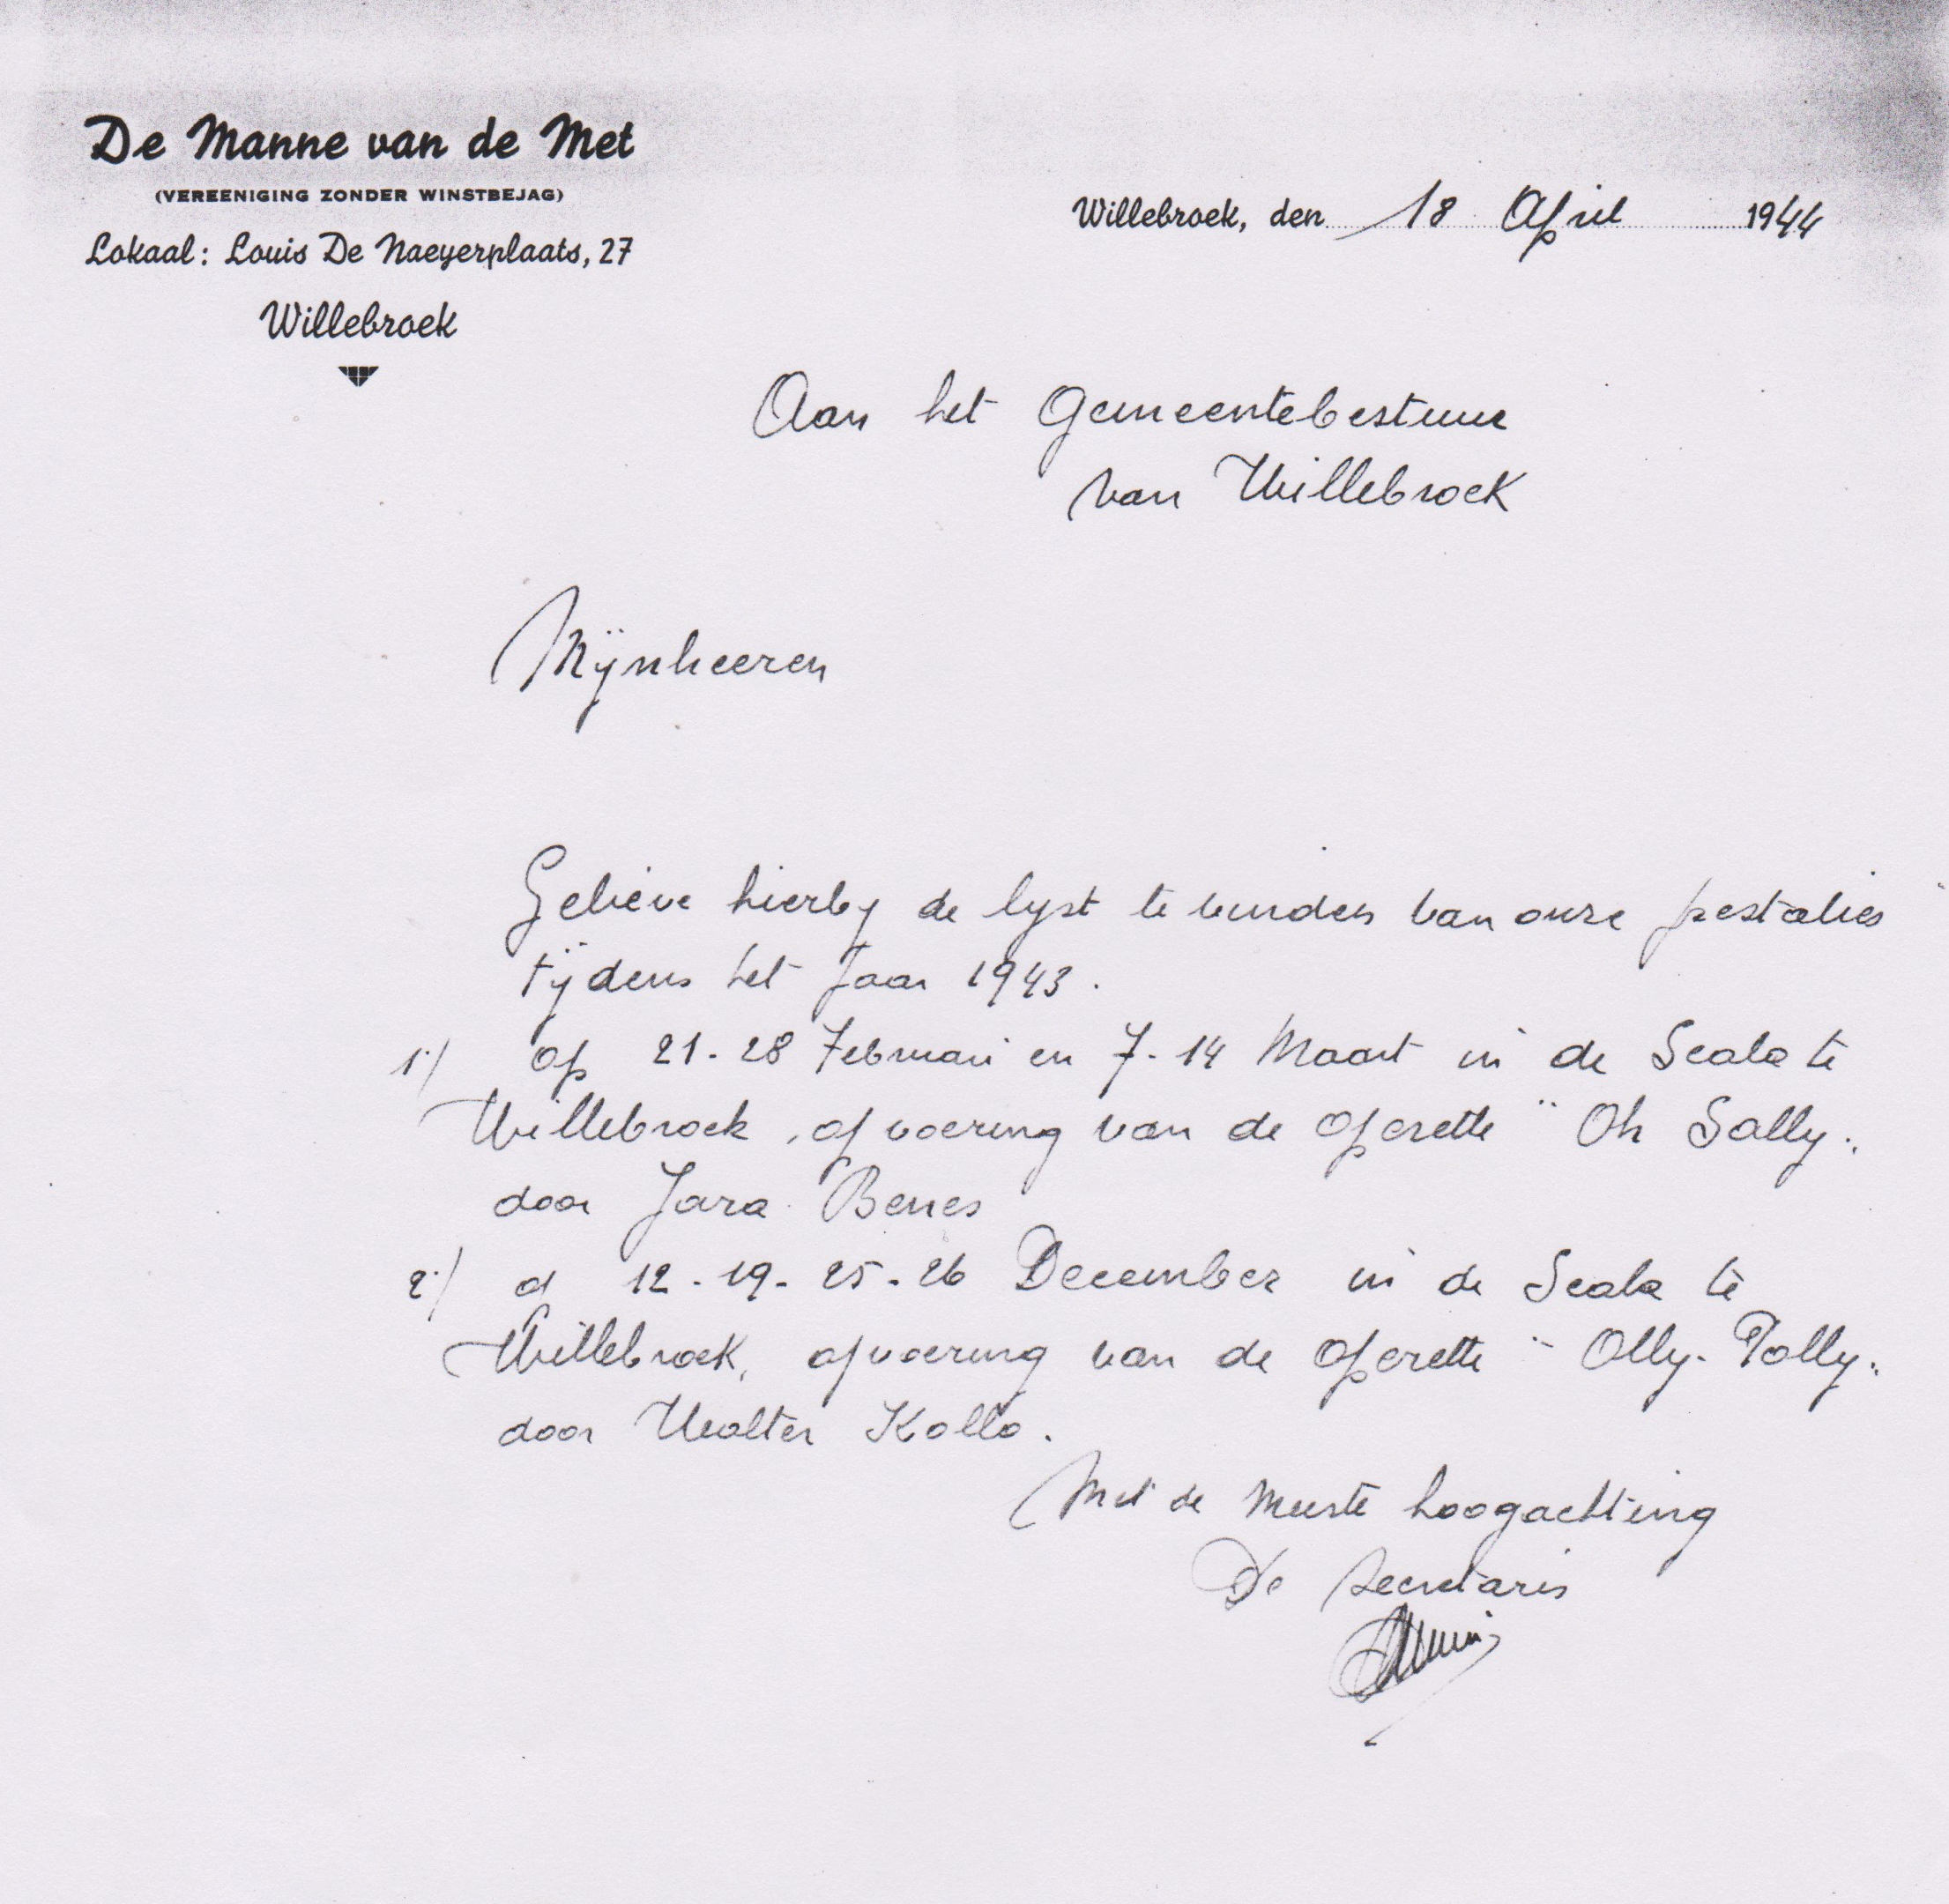 De Manne van de Met
(VEREENIGING ZONDER WINSTBEJAG)
Willebroek, den 18 April 1944
Lokaal: Louis De Naeyerplaats, 27
Willebroek
Aan het Gemeentebestuur
van Willebroek
Mijnheeren
Gelieve hierby de lyst te vinden van onze prestaties
tijdens het Jaar 1943.
1°/ op 21-28 Februari en 7-14 Maart in de Scala te
Willebroek, opvoering van de Operette "Oh Sally".
door Jara Benes
2°/ op 12-19-25-26 December in de Scala te
Willebroek, opvoering van de Operette "Olly-Polly".
door Walter Kollo.
Met de meeste hoogachting
De Secretaris